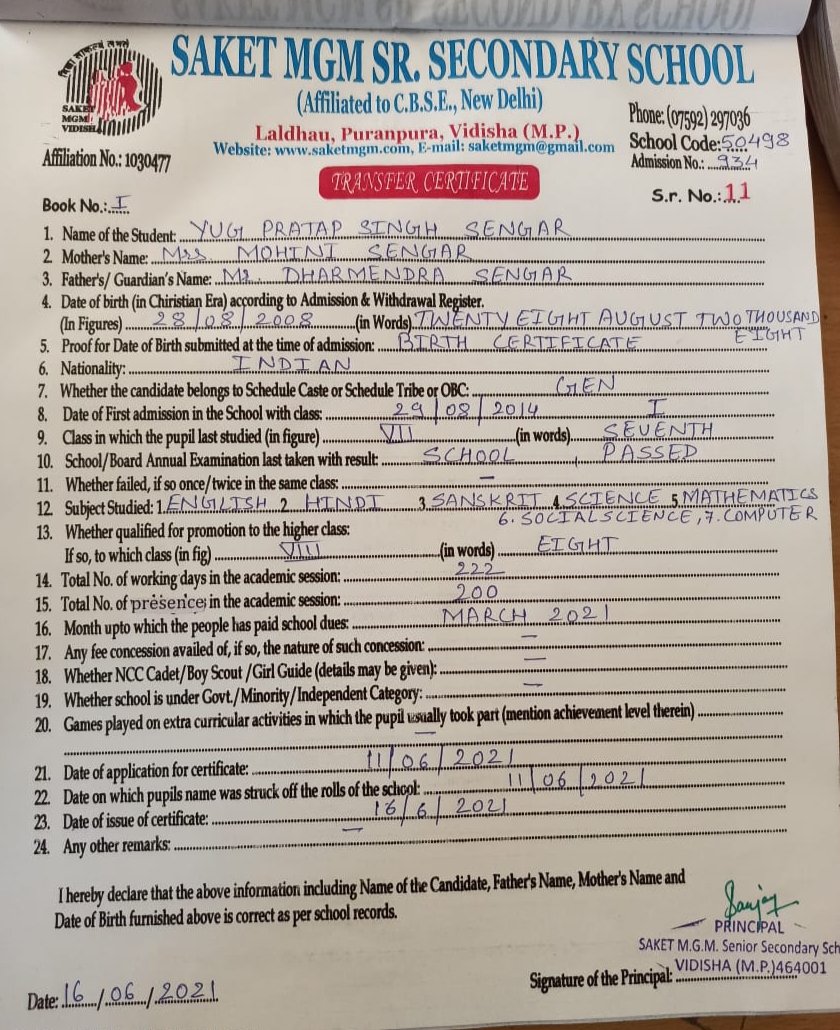 SAKET MGM SR. SECONDARY SCHOOL
(Affiliated to C.B.S.E., New Delhi)
Laldhau, Puranpura, Vidisha (M.P.)
Website: www.saketmgm.com, E-mail: saketmgm@gmail.com
SAKET
MGM
VIDISHA
Phone: (07592) 297036
School Code: 50498
Affiliation No.: 1030477
Admission No.: 934
TRANSFER CERTIFICATE
Book No.: I
S.r. No.: 11
1. Name of the Student: YUG PRATAP SINGH SENGAR
2. Mother's Name: Mrs MOHINI SENGAR
3. Father's/ Guardian's Name: Mr. DHARMENDRA SENGAR
4. Date of birth (in Chiristian Era) according to Admission & Withdrawal Register.
(In Figures) 28/08/2008 (in Words) TWENTY EIGHT AUGUST TWO THOUSAND
EIGHT
5. Proof for Date of Birth submitted at the time of admission: BIRTH CERTIFICATE
6. Nationality: INDIAN
7. Whether the candidate belongs to Schedule Caste or Schedule Tribe or OBC: GEN
8. Date of First admission in the School with class: 29/08/2014 I
9. Class in which the pupil last studied (in figure) VII (in words) SEVENTH
10. School/Board Annual Examination last taken with result: SCHOOL, PASSED
11. Whether failed, if so once/twice in the same class: –
12. Subject Studied: 1. ENGLISH 2. HINDI 3. SANSKRIT 4. SCIENCE 5. MATHEMATICS
6. SOCIAL SCIENCE, 7. COMPUTER
13. Whether qualified for promotion to the higher class:
If so, to which class (in fig) VIII (in words) EIGHT
14. Total No. of working days in the academic session: 222
15. Total No. of presence; in the academic session: 200
16. Month upto which the people has paid school dues: MARCH 2021
17. Any fee concession availed of, if so, the nature of such concession: –
18. Whether NCC Cadet/Boy Scout /Girl Guide (details may be given): –
19. Whether school is under Govt./Minority/Independent Category: –
20. Games played on extra curricular activities in which the pupil usually took part (mention achievement level therein)
–
21. Date of application for certificate: 11/06/2021
22. Date on which pupils name was struck off the rolls of the school: 11/06/2021
23. Date of issue of certificate: 16/6/2021
24. Any other remarks: –
I hereby declare that the above information including Name of the Candidate, Father's Name, Mother's Name and
Date of Birth furnished above is correct as per school records.
Sanjay
PRINCIPAL
SAKET M.G.M. Senior Secondary Sch
VIDISHA (M.P.)464001
Signature of the Principal:
Date: 16/06/2021